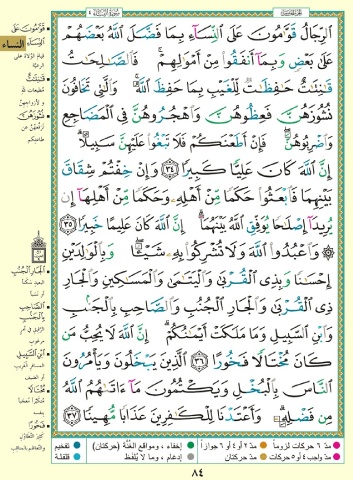 سورة النساء ٤
الجزء الخامس
ٱلرِّجَالُ قَوَّٰمُونَ عَلَى ٱلنِّسَآءِ بِمَا فَضَّلَ ٱللَّهُ بَعْضَهُمْ
عَلَىٰ بَعْضٍ وَبِمَآ أَنفَقُوا۟ مِنْ أَمْوَٰلِهِمْ ۚ فَٱلصَّٰلِحَٰتُ
قَٰنِتَٰتٌ حَٰفِظَٰتٌ لِّلْغَيْبِ بِمَا حَفِظَ ٱللَّهُ ۚ وَٱلَّٰتِى تَخَافُونَ
نُشُوزَهُنَّ فَعِظُوهُنَّ وَٱهْجُرُوهُنَّ فِى ٱلْمَضَاجِعِ
وَٱضْرِبُوهُنَّ ۖ فَإِنْ أَطَعْنَكُمْ فَلَا تَبْغُوا۟ عَلَيْهِنَّ سَبِيلًا ۗ
إِنَّ ٱللَّهَ كَانَ عَلِيًّا كَبِيرًا ٣٤ وَإِنْ خِفْتُمْ شِقَاقَ
بَيْنِهِمَا فَٱبْعَثُوا۟ حَكَمًا مِّنْ أَهْلِهِۦ وَحَكَمًا مِّنْ أَهْلِهَآ إِن
يُرِيدَآ إِصْلَٰحًا يُوَفِّقِ ٱللَّهُ بَيْنَهُمَآ ۗ إِنَّ ٱللَّهَ كَانَ عَلِيمًا خَبِيرًا ٣٥
۞ وَٱعْبُدُوا۟ ٱللَّهَ وَلَا تُشْرِكُوا۟ بِهِۦ شَيْـًٔا ۖ وَبِٱلْوَٰلِدَيْنِ
إِحْسَٰنًا وَبِذِى ٱلْقُرْبَىٰ وَٱلْيَتَٰمَىٰ وَٱلْمَسَٰكِينِ وَٱلْجَارِ
ذِى ٱلْقُرْبَىٰ وَٱلْجَارِ ٱلْجُنُبِ وَٱلصَّاحِبِ بِٱلْجَنۢبِ
وَٱبْنِ ٱلسَّبِيلِ وَمَا مَلَكَتْ أَيْمَٰنُكُمْ ۗ إِنَّ ٱللَّهَ لَا يُحِبُّ مَن
كَانَ مُخْتَالًا فَخُورًا ٣٦ ٱلَّذِينَ يَبْخَلُونَ وَيَأْمُرُونَ
ٱلنَّاسَ بِٱلْبُخْلِ وَيَكْتُمُونَ مَآ ءَاتَىٰهُمُ ٱللَّهُ
مِن فَضْلِهِۦ ۗ وَأَعْتَدْنَا لِلْكَٰفِرِينَ عَذَابًا مُّهِينًا ٣٧
النساء
قَوَّامُونَ على
النِّسَاء
قيام الولاة على
الرعيّة
قَانِتَاتٌ
مطيعات لله
ولأزواجهن
نُشُوزَهُنَّ
ترفّعهنّ عن
طاعتكم
الجار الجُنُب
البعيد سكناً
أو نسباً
الصَّاحِب
بالجَنْب
الرفيق في أمر
مرغوب
ابن السَّبيل
مُخْتَالًا
فَخُورًا
مدّ ٦ حركات لزوماً
مدّ ٢ أو ٤ أو ٦ جوازاً
مدّ واجب ٤ أو ٥ حركات
مدّ حركتان
إخفاء، ومواقع الغُنّة (حركتان)
إدغام، وما لا يُلفظ
تفخيم
قلقلة
٨٤